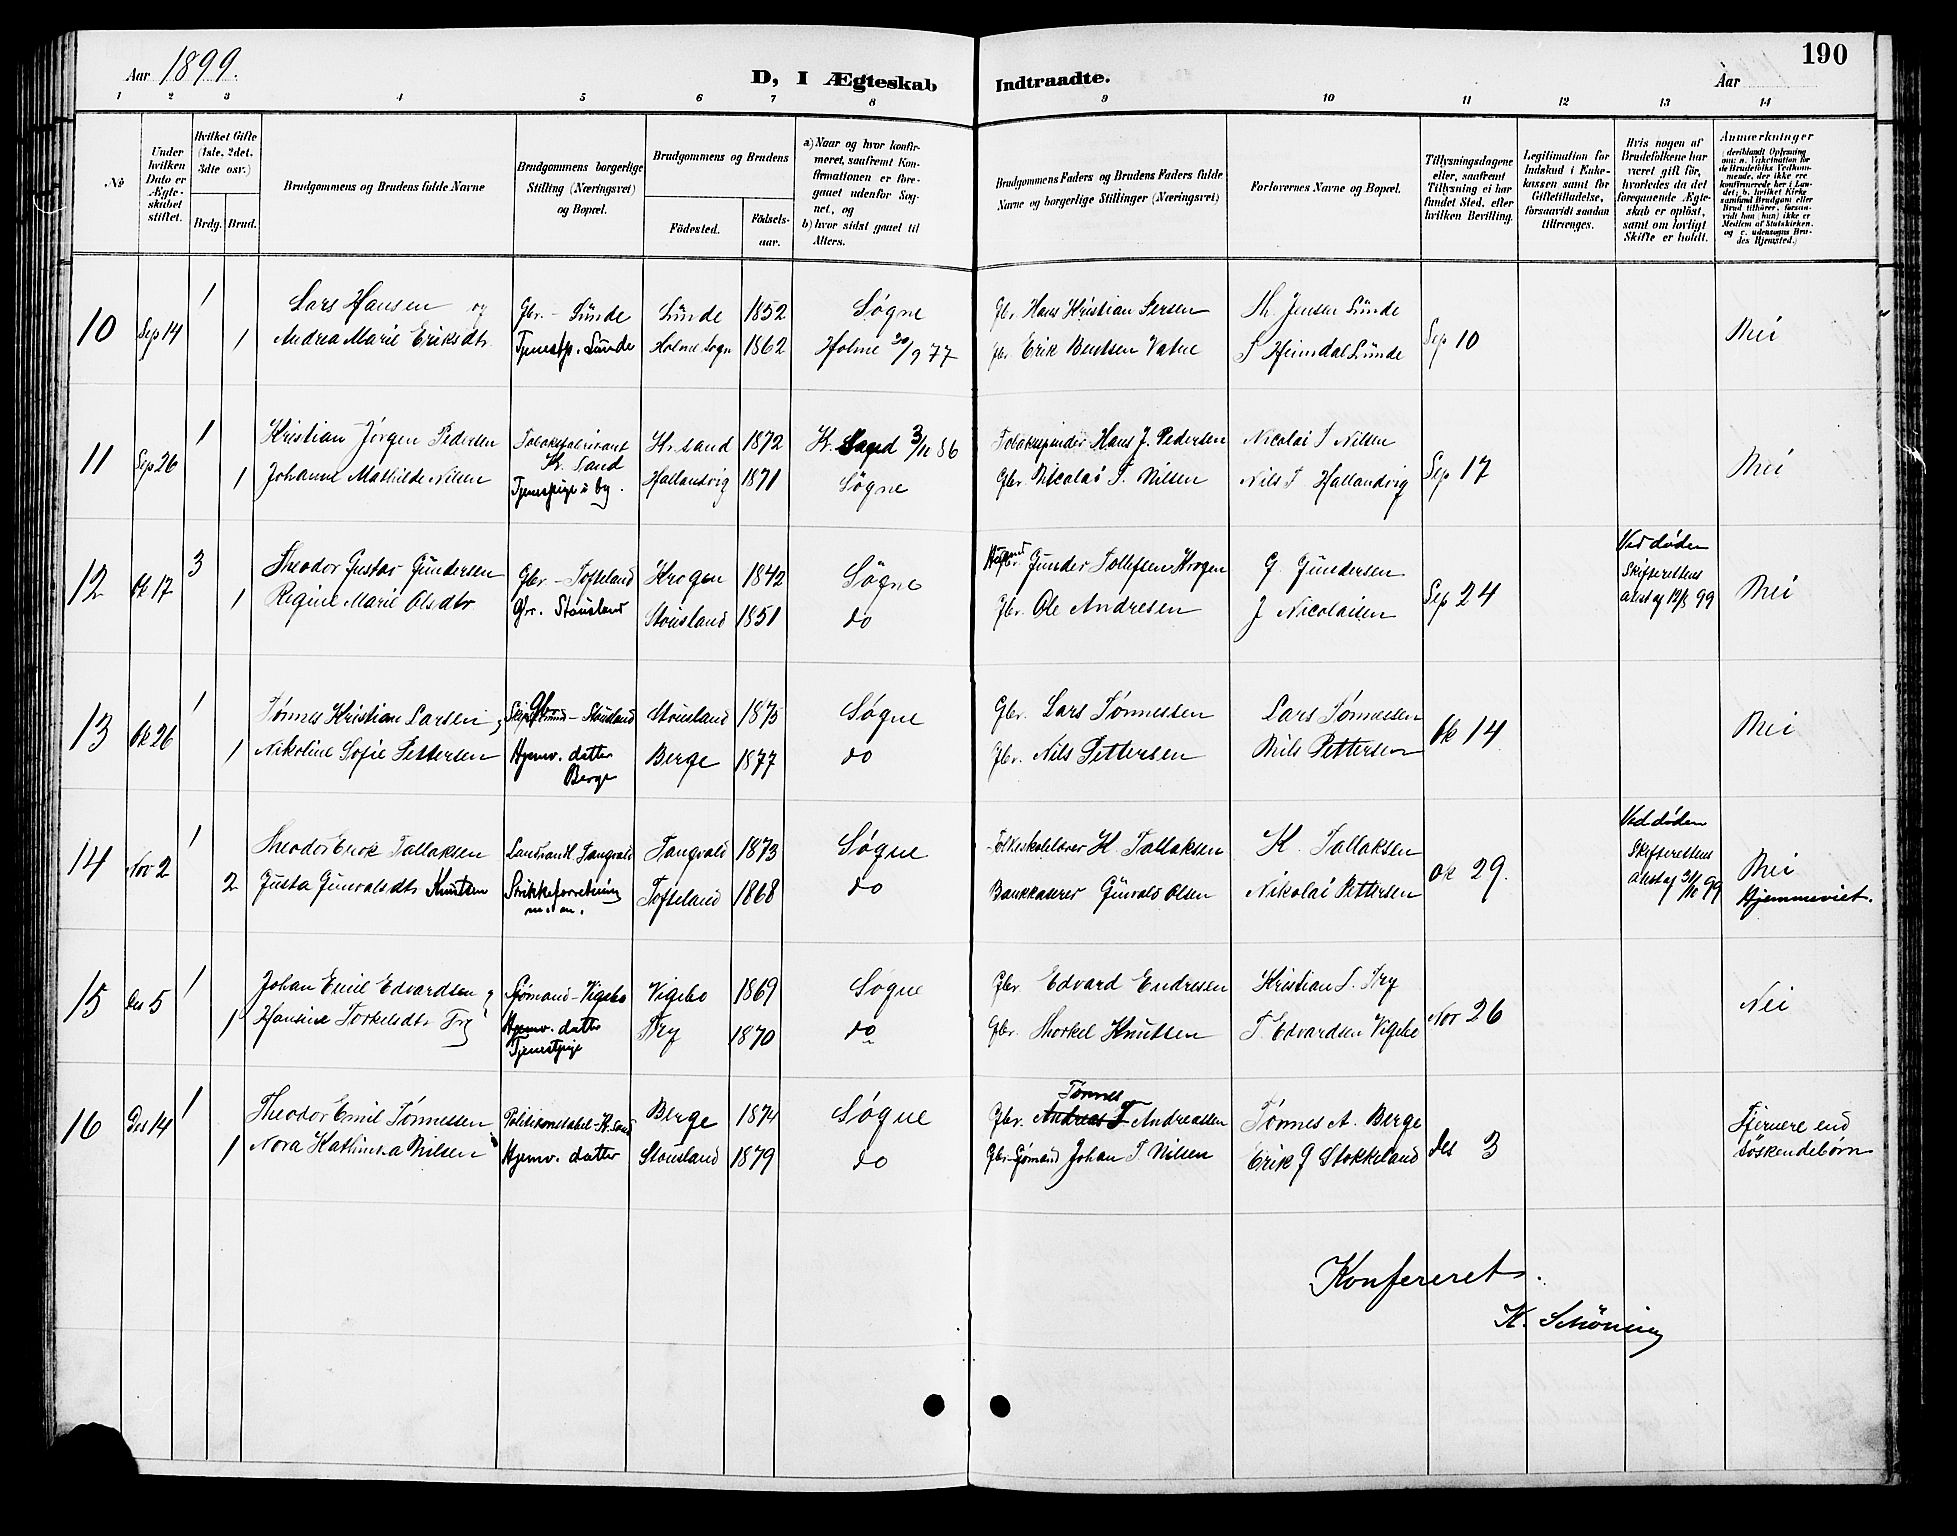 190
Aar 1899.
D, I Ægteskab Indtraadte.
Aar
1 2 3 4 5 6 7 8 9 10 11 12 13 14
No
Under hvilken Dato er Ægteskabet stiftet.
Hvilket Gifte (1ste, 2det, 3dte osv.)
Brdg. Brud.
Brudgommens og Brudens fulde Navne
Brudgommens borgerlige Stilling (Næringsvei) og Bopæl.
Brudgommens og Brudens
Fødested. Fødselsaar.
a) Naar og hvor konfirmeret, saafremt Konfirmationen er foregaaet udenfor Sognet, og
b) hvor sidst gaaet til Alters.
Brudgommens Faders og Brudens Faders fulde Navne og borgerlige Stillinger (Næringsvei)
Forlovernes Navne og Bopæl.
Tillysningsdagene eller, saafremt Tillysning ei har fundet Sted, efter hvilken Bevilling.
Legitimation for Indskud i Enkekassen samt for Giftetilladelse, forsaavidt saadan tiltrænges.
Hvis nogen af Brudefolkene har været gift før, hvorledes da det foregaaende Ægteskab er opløst, samt om lovligt Skifte er holdt.
Anmærkninger (deriblandt Oplysning om: a. Vakcination for de Brudefolks Vedkommende, der ikke ere konfirmerede her i Landet; b. hvilket Kirkesamfund Brudgom eller Brud tilhører, forsaavidt han (hun) ikke er Medlem af Statskirken, og c. udensogns Brudes Hjemsted.)
10 Sep 14 1 Lars Hansen og Gbr. - Lunde Lunde 1852 Søgne Gbr. Hans Kristian Th. Jensen Lunde Sep 10 Nei
1 Andrea Marie Eriksdtr. Tjenestp. Lunde Holme Sogn 1862 Holme 30/9 77 Gbr. Erik Bentsen Vatne T Heimdal Lunde
11 Sep 26 1 Kristian Jørgen Pedersen Tobaksfabrikant Kr. Sand Kr. sand 1872 Kr. Sand 3/11 86 Tobakspinder Hans J. Pedersen Nicolai T Nilsen Sep 17 Nei
1 Johanne Mathilde Nilsen Tjenestpige i by. Hallandvig 1871 Søgne Gbr. Nicolai T. Nilsen Nils T Hallandvig
12 Ok 17 3 Theodor Gustav Gundersen Gbr - Tofteland Krogen 1842 Søgne Gunder Tollefsen Krogen G. Gundersen Sep 24 Ved døden Skifterettens attest af 12/8 99 Nei
1 Regine Marie Olsdtr Gbr. Stousland Stousland 1851 do Gbr. Ole Andresen J Nicolaisen
13 Ok 26 1 Tønnes Kristian Larsen Gbr - Stousland Stousland 1875 Søgne Gbr. Lars Tønnessen Lars Tønnessen Ok 14 Nei
1 Nikoline Sofie Pettersen Hjemv. datter Berge Berge 1877 do Gbr. Nils Pettersen Nils Pettersen
14 Nov 2 1 Theodor Enok Tallaksen Landhandl. Tangvald Tangvald 1873 Søgne Folkeskolelærer K. Tallaksen K. Tallaksen Ok 29. Ved døden Skifterettens attest af 31/10 99 Nei
2 Justa Gunvaldsdtr Knutsen Strikkeforretning Tofteland 1868 do Bankkaserer Gunvald Olsen Nikolai Pettersen Hjemmeviet.
15 Des 5 1 Johan Emil Edvardsen Sjømand - Vigebo Vigebo 1869 Søgne Gbr Edvard Endresen Kristian S. Try Nov 26 Nei
1 Hansine Torkelsdtr Try Hjemv. datter Tjenestpige Try 1870 do Gbr. Thorkel Knutsen T. Edvardsen Vigebo
16 Des 14 1 Theodor Emil Tønnessen Politikonstabel - Kr. Sand Berge 1874 Søgne Gbr. Andreas T Tønnes Andreassen Tønnes A. Berge Des 3 Fjernere end søskendebørn
1 Nora Kathinka Nilsen Hjemv. datter Stousland 1879 do Gbr - Sjømand Johan T Nilsen Erik J Stokkeland
Konfereret.
K. Schöning